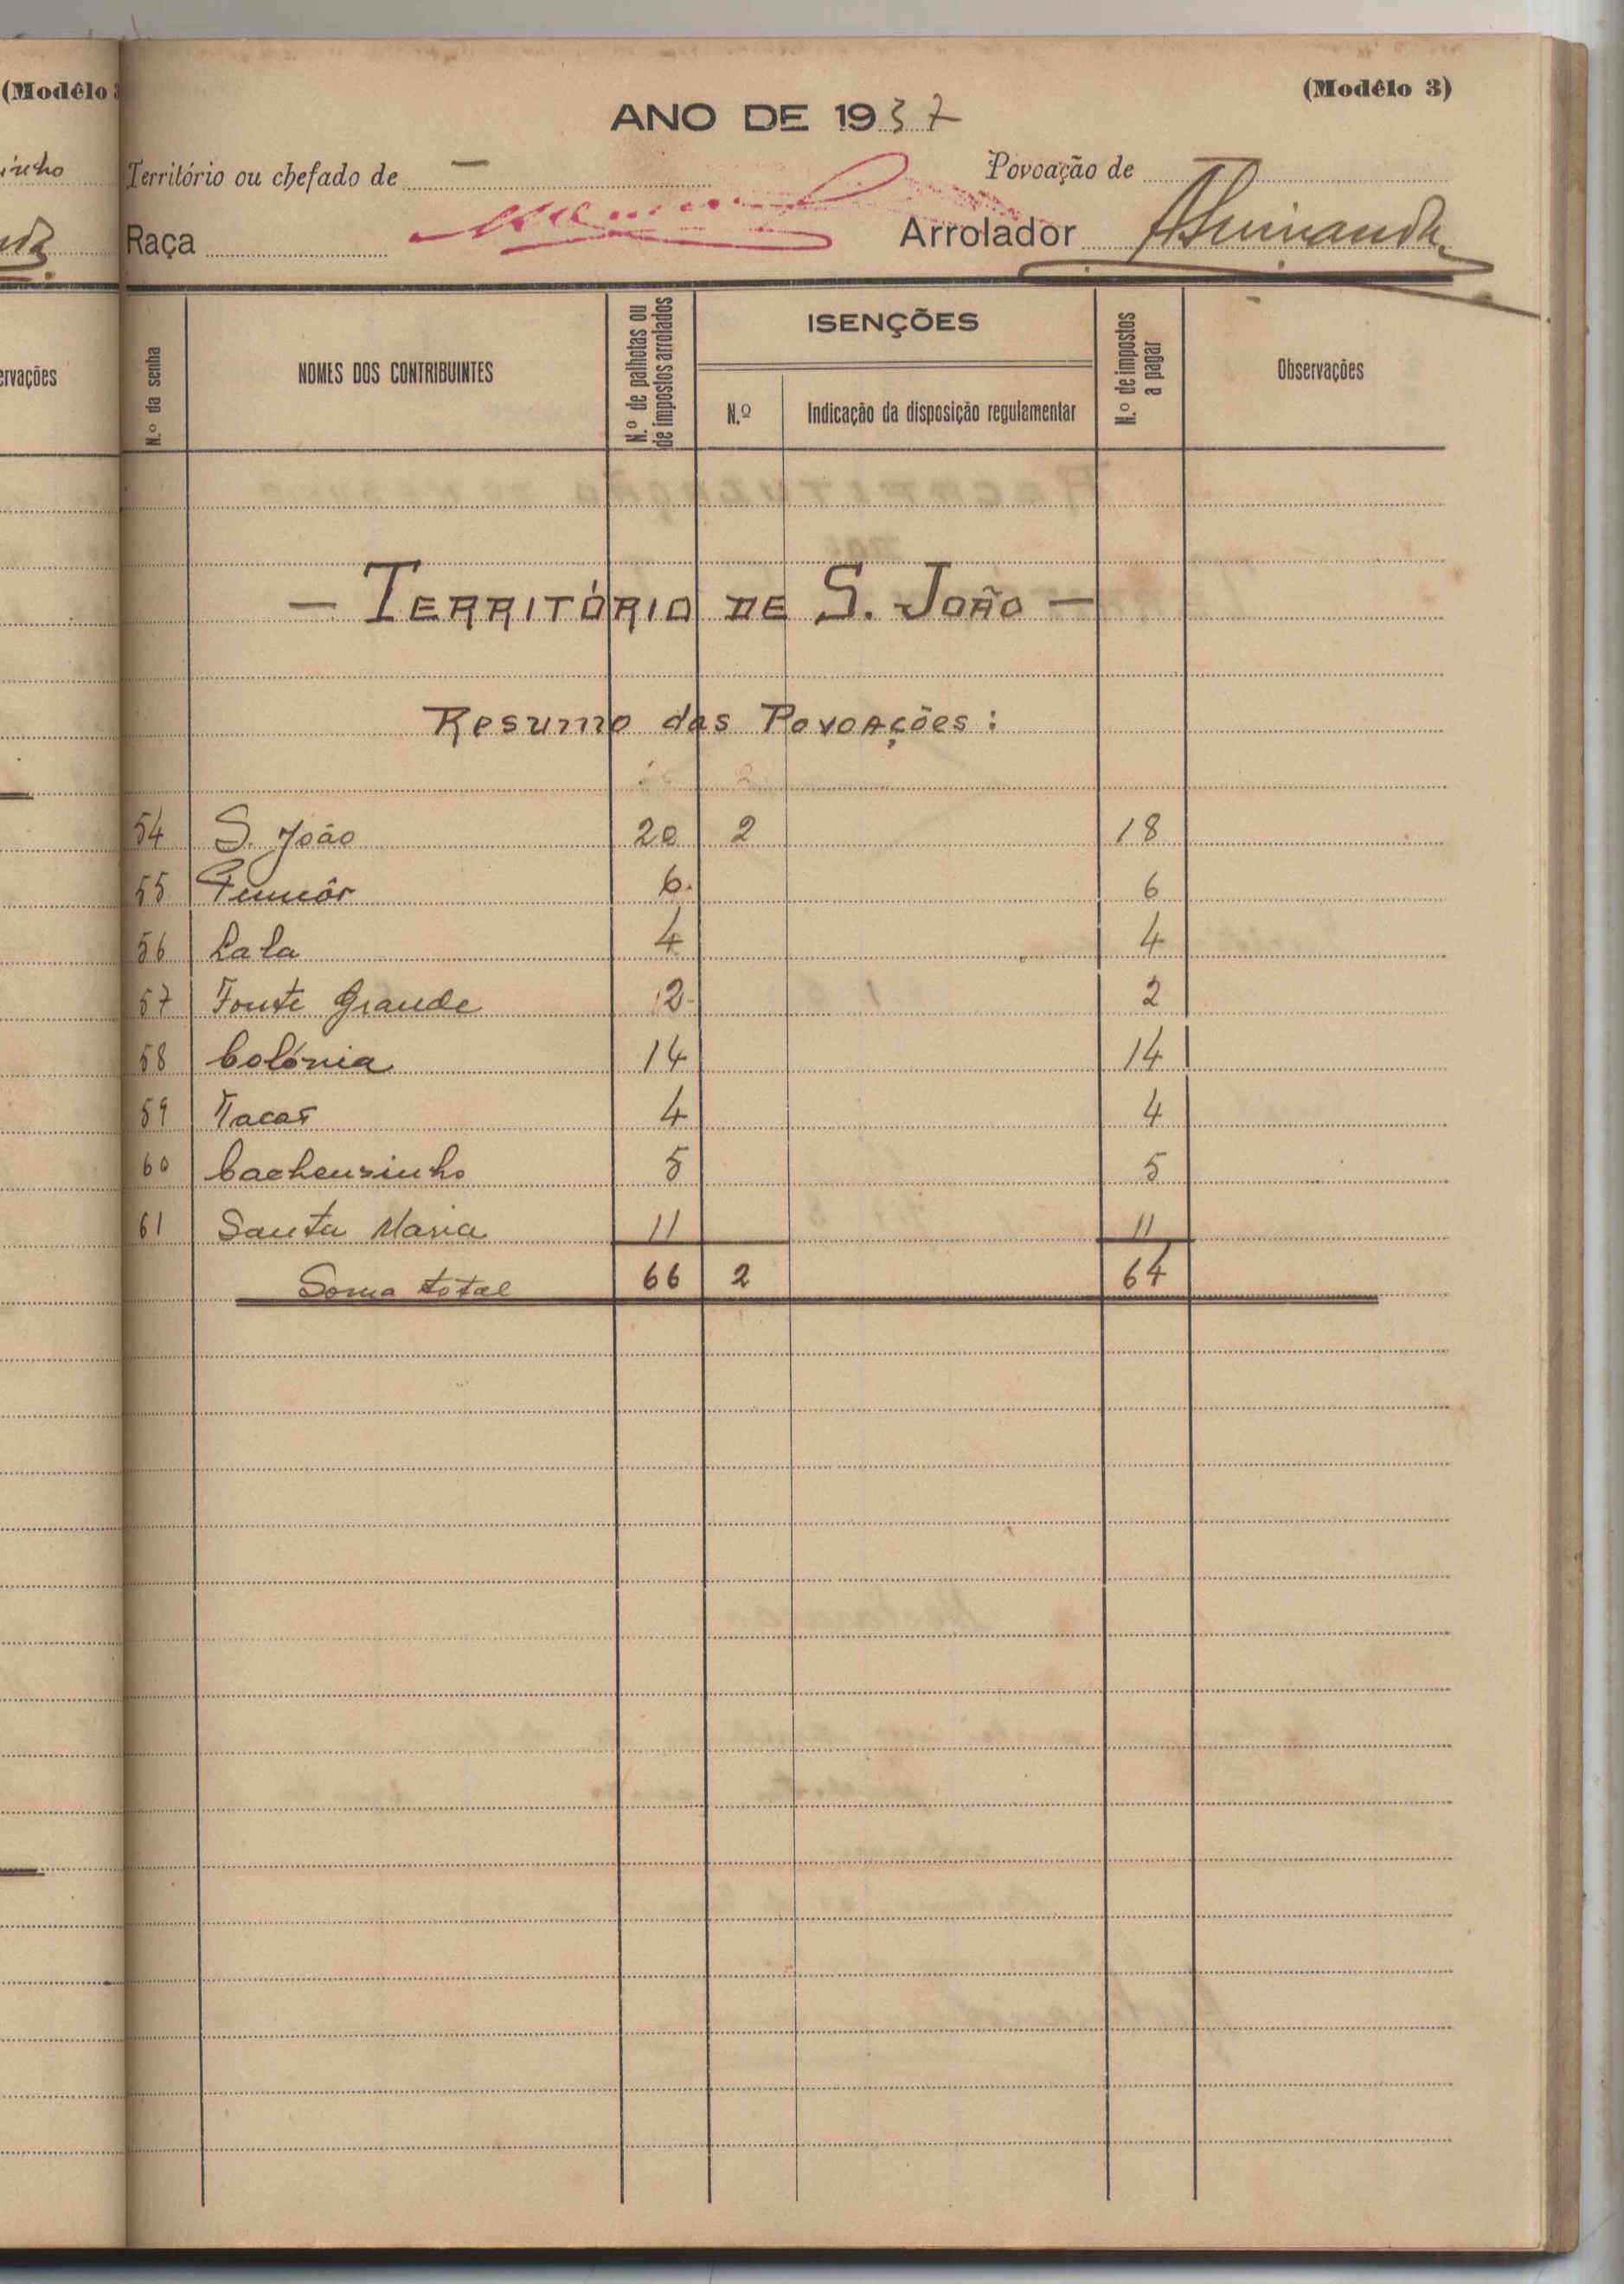 (Modêlo
(Modêlo 3)
ANO DE 1937
Território ou chefado de —
Povoação de
Raça
Arrolador
ervações
N.º da senha
NOMES DOS CONTRIBUINTES
N.º de palhotas ou de impostos arrolados
ISENÇÕES
N.º
Indicação da disposição regulamentar
N.º de impostos a pagar
Observações
— TERRITÓRIO DE S. JOÃO —
Resumo das Povoações:
54 S. João 20 2 18
55 6 6
56 Lala 4 4
57 Fonte Grande 2 2
58 Colónia 14 14
59 4 4
60 5 5
61 Santa Maria 11 11
Soma total 66 2 64